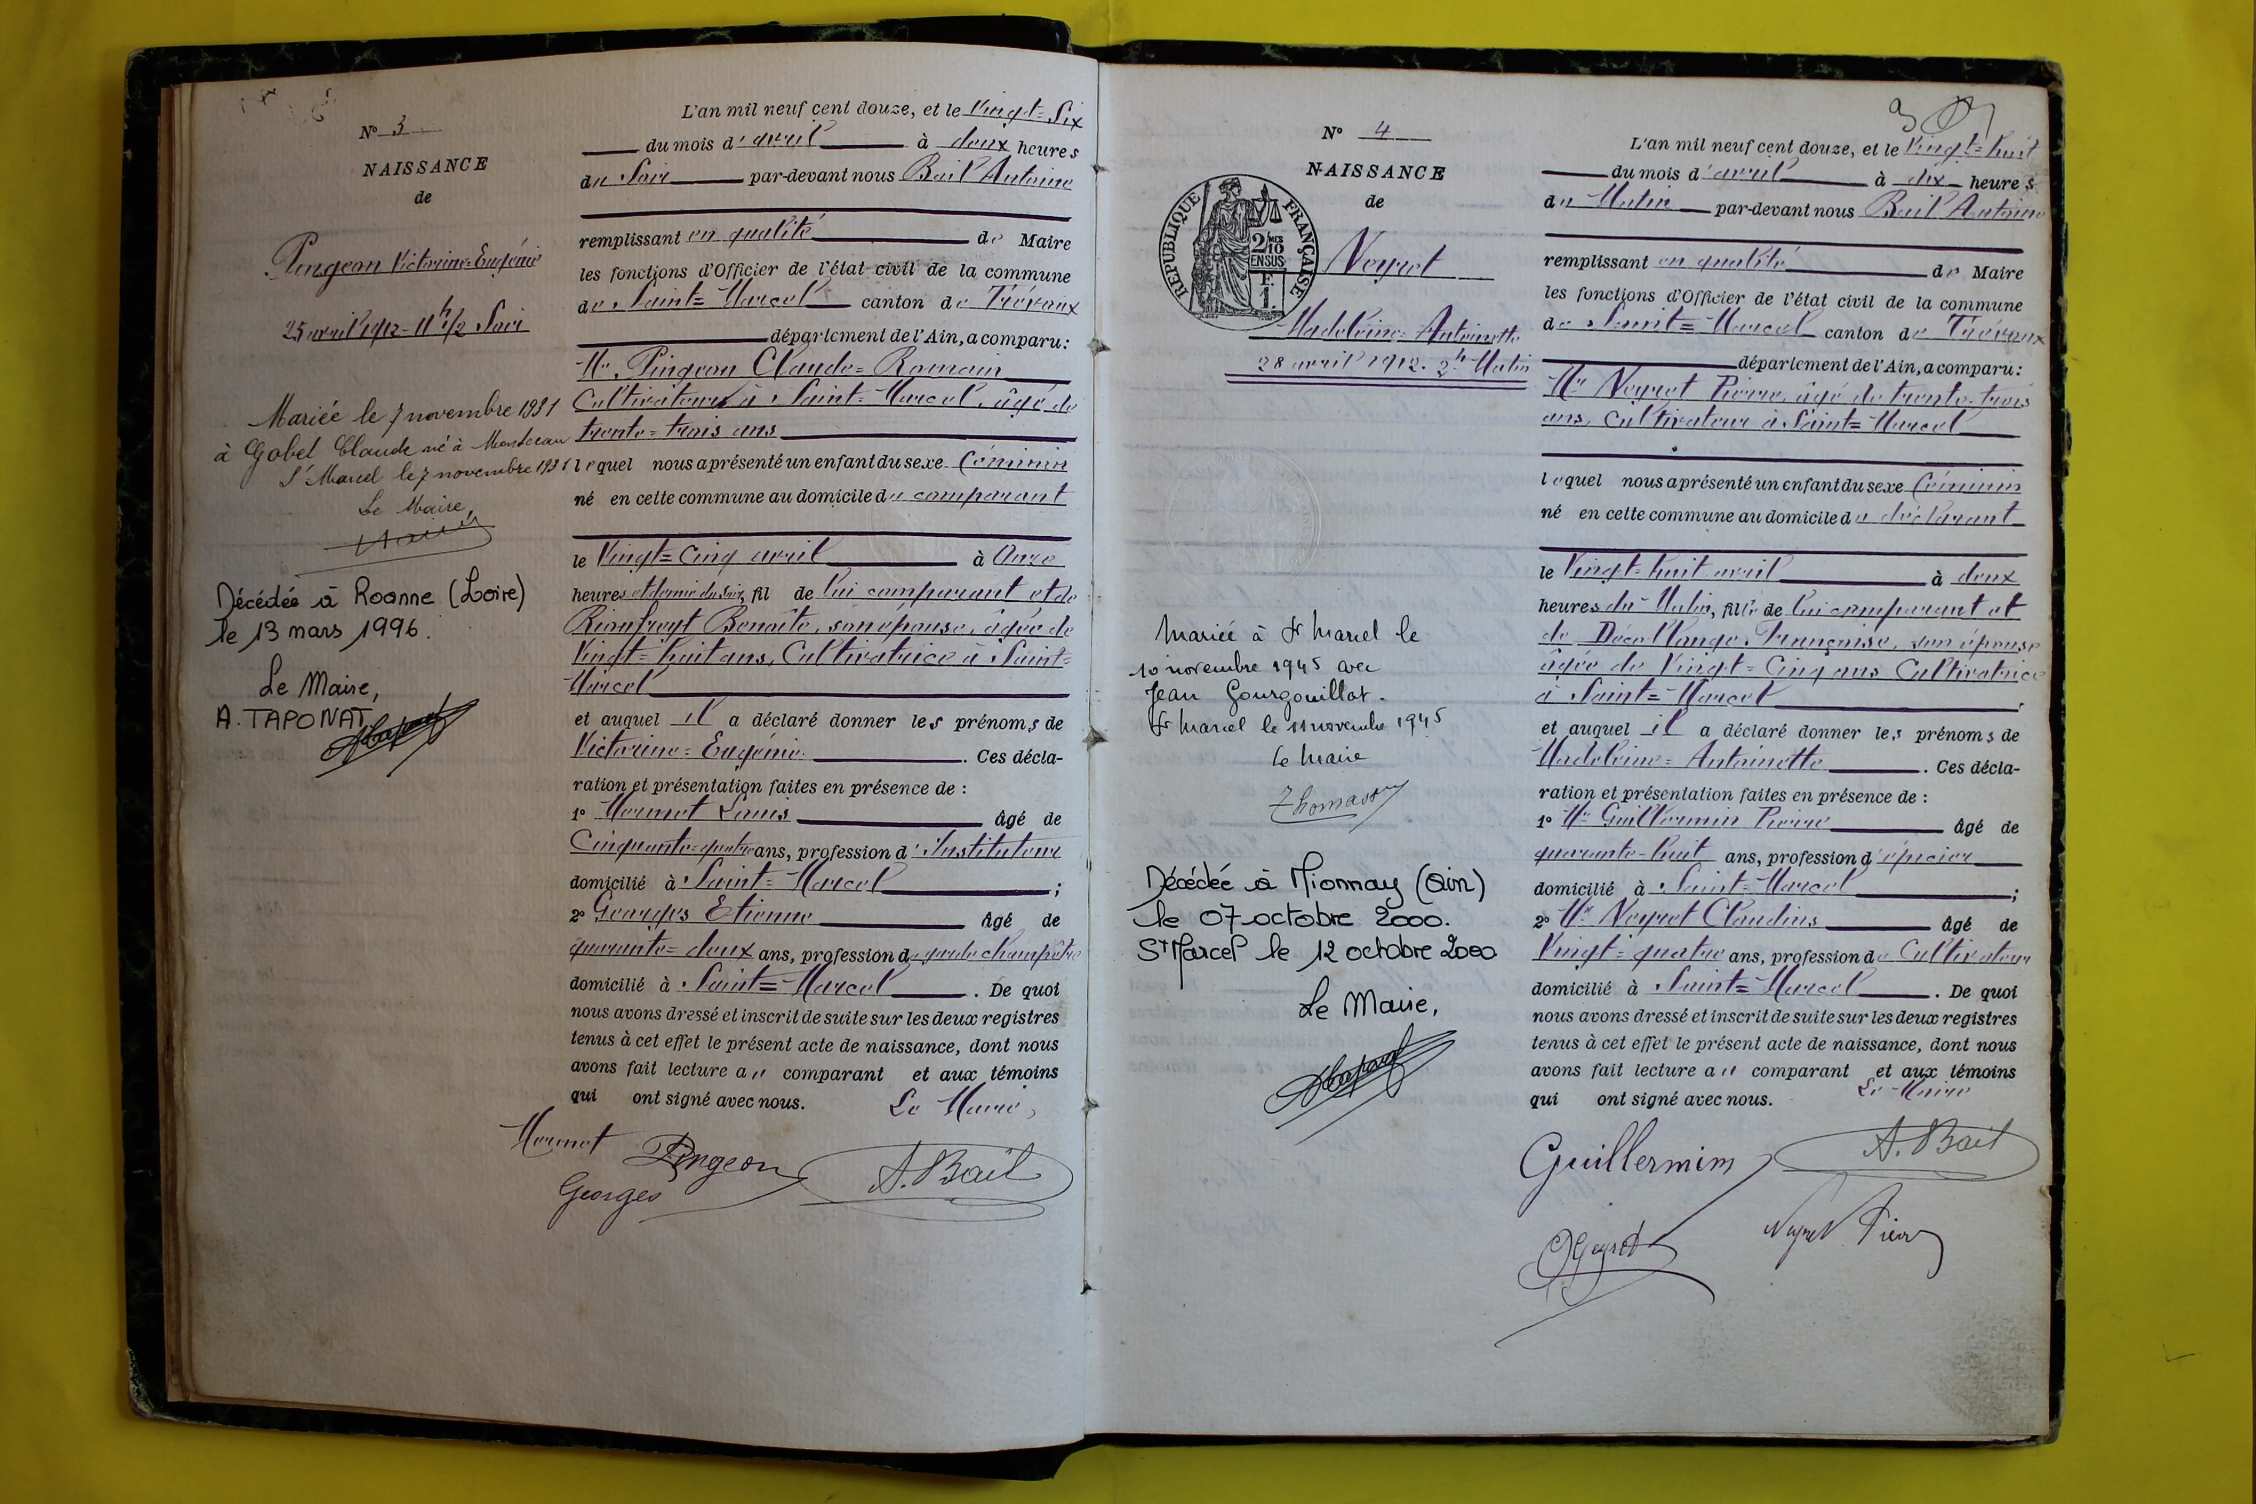 N° 3
NAISSANCE
de
Pingeon Victorine=Eugénie
25 avril 1912 - 11 h 1/2 Soir
Mariée le 7 novembre 1931
à Gobet Claude né à Monteceau
St Marcel le 7 novembre 1931
Le Maire,
Décédée à Roanne (Loire)
le 13 mars 1996.
Le Maire,
A. TAPONAT
L'an mil neuf cent douze, et le Vingt=Six
du mois d'avril à deux heures
du Soir par-devant nous Bail Antoine
remplissant en qualité de Maire
les fonctions d'Officier de l'état civil de la commune
de Saint=Marcel canton de Trévoux
département de l'Ain, a comparu:
Mr. Pingeon Claude=Romain
Cultivateur à Saint=Marcel, âgé de
trente=trois ans
lequel nous a présenté un enfant du sexe féminin
né en cette commune au domicile du comparant
le Vingt=Cinq avril à Onze
heures et demie du Soir, fil de lui comparant et de
Benoîte, son épouse, âgée de
Vingt=huit ans, Cultivatrice à Saint=
Marcel
et auquel il a déclaré donner les prénoms de
Victorine=Eugénie. Ces décla-
ration et présentation faites en présence de :
1° Mermet Louis Âgé de
Cinquante=quatre ans, profession d'Instituteur
domicilié à Saint=Marcel ;
2° Georges Etienne Âgé de
quarante=deux ans, profession de garde champêtre
domicilié à Saint=Marcel. De quoi
nous avons dressé et inscrit de suite sur les deux registres
tenus à cet effet le présent acte de naissance, dont nous
avons fait lecture au comparant et aux témoins
qui ont signé avec nous. Le Maire,
Mermet Pingeon A. Bail
Georges
N° 4
NAISSANCE
de
RÉPUBLIQUE FRANÇAISE
2/10
EN SUS
F.
1.
Neyret
Madeleine=Antoinette
28 avril 1912. 2 h Matin
Mariée à St Marcel le
10 novembre 1945 avec
Jean Gourgouillat.
St Marcel le 11 novembre 1945
Le Maire
Thomasson
Décédée à Mionnay (Ain)
le 07 octobre 2000.
St Marcel le 12 octobre 2000
Le Maire,
3
L'an mil neuf cent douze, et le Vingt=huit
du mois d'avril à dix heures
du Matin par-devant nous Bail Antoine
remplissant en qualité de Maire
les fonctions d'Officier de l'état civil de la commune
de Saint=Marcel canton de Trévoux
département de l'Ain, a comparu:
Mr Neyret Pierre, âgé de trente-trois
ans, Cultivateur à Saint=Marcel
lequel nous a présenté un enfant du sexe féminin
né en cette commune au domicile du déclarant
le Vingt=huit avril à deux
heures du Matin, fille de lui comparant et
de Décollange Françoise, son épouse
âgée de Vingt=Cinq ans Cultivatrice
à Saint=Marcel
et auquel il a déclaré donner les prénoms de
Madeleine=Antoinette. Ces décla-
ration et présentation faites en présence de :
1° Mr Guillermin Pierre Âgé de
quarante-huit ans, profession d'épicier
domicilié à Saint=Marcel ;
2° Mr Neyret Claudius Âgé de
Vingt=quatre ans, profession de Cultivateur
domicilié à Saint=Marcel. De quoi
nous avons dressé et inscrit de suite sur les deux registres
tenus à cet effet le présent acte de naissance, dont nous
avons fait lecture au comparant et aux témoins
qui ont signé avec nous. Le Maire
Guillermin A. Bail
Neyret Pierre